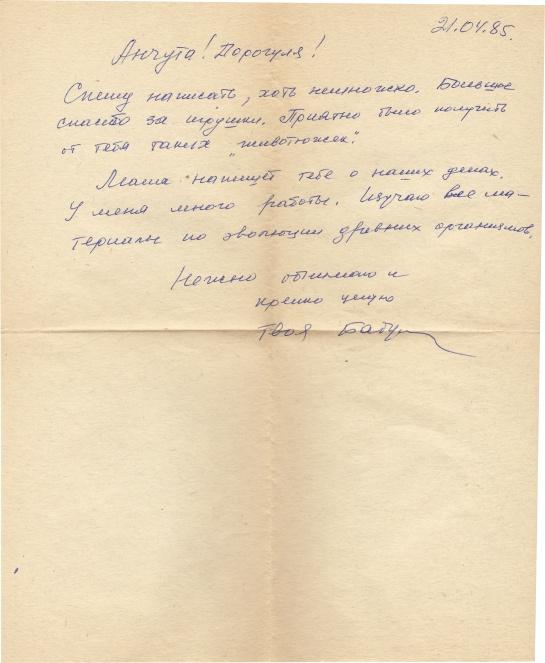 21.04.85.
Анчута! Дорогуля!
Спешу написать, хоть немножко. Большое
спасибо за игрушки. Приятно было получить
от тебя таких "животюжек".
Маша напишет тебе о наших делах.
У меня много работы. Изучаю все ма-
териалы по эволюции древних организмов.
Нежно обнимаю и
крепко целую
Твоя Бабу